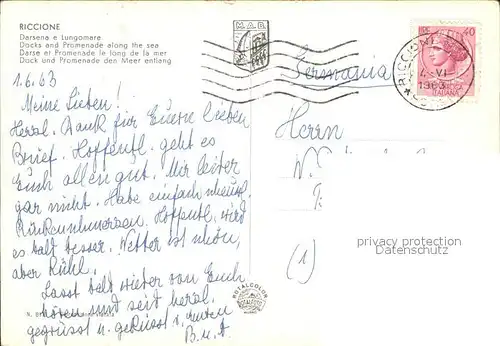 RICCIONE
Darsena e Lungomare
Docks and Promenade along the sea
Darse et Promenade le long de la mer
Dock und Promenade den Meer entlang
1.6.63
Meine Lieben!
Herzl. Dank für Euern lieben
Brief. Hoffentl. geht es
Euch allen gut. Mir leider
gar nicht. Habe einfach
Rückenschmerzen. Hoffentl. wird
es bald besser. Wetter ist schön,
aber kühl.
Lasst bald wieder von Euch
hören und seid herzl.
gegrüsst u. geküsst v.
M.A.B.
Germania
Herrn
(1)
RICCIONE
4-VI
1963
40
ITALIANA
privacy protection
Datenschutz
ROTALCOLOR